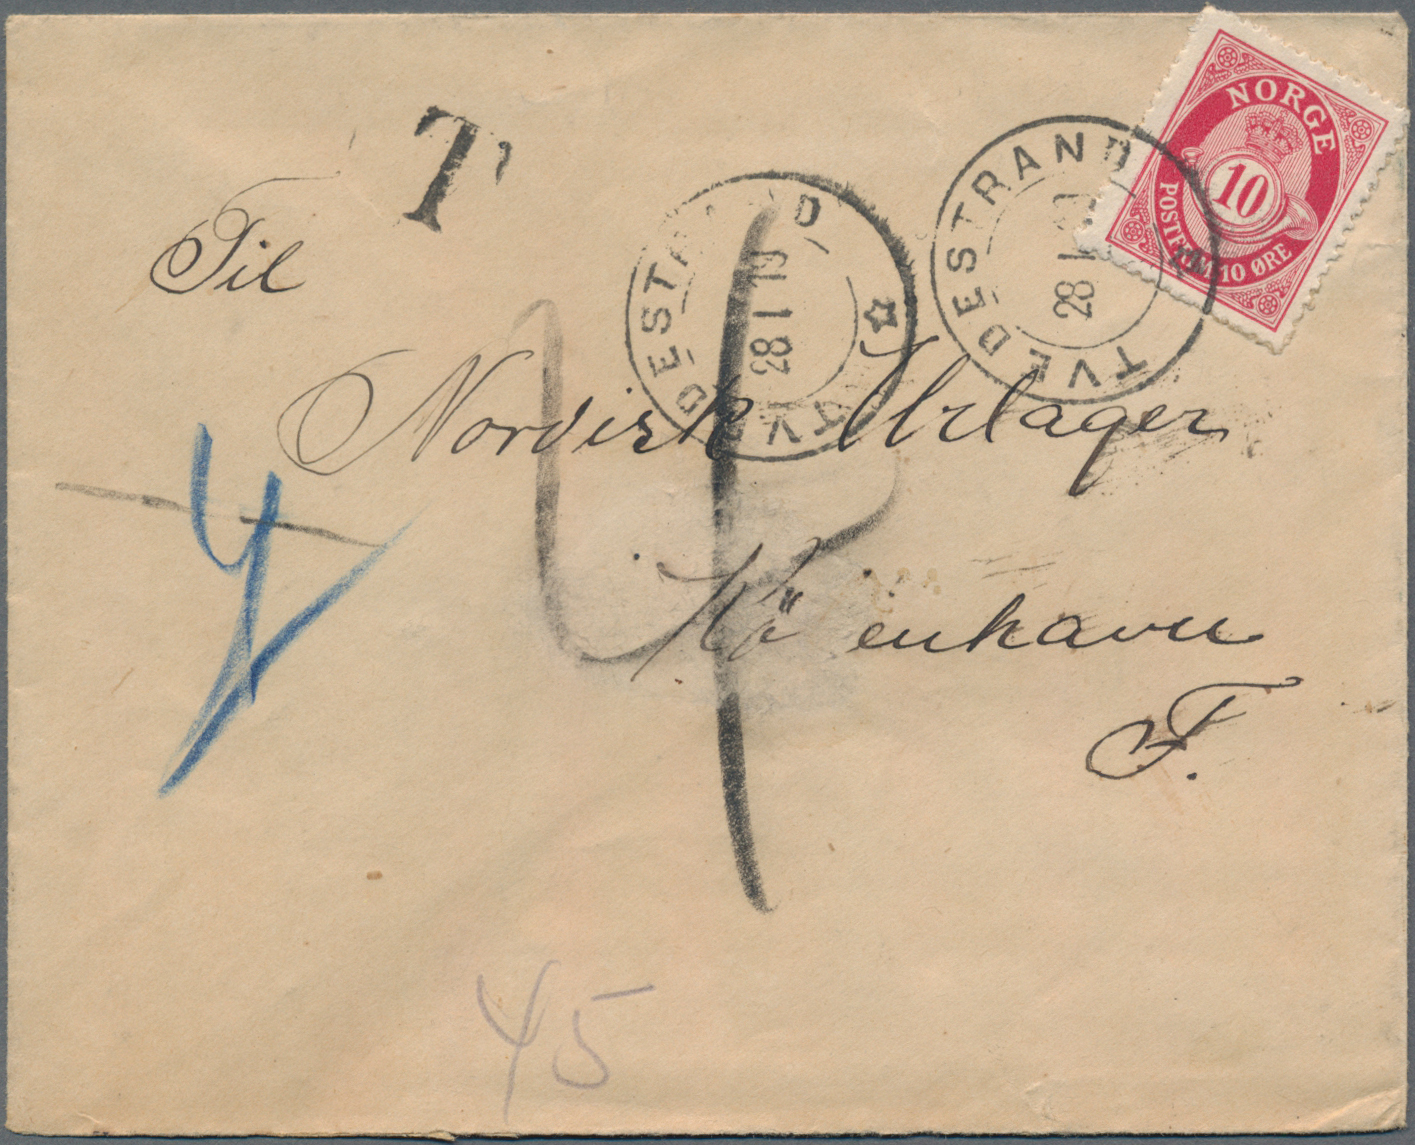 T
NORGE
10
POSTFRIM 10 ØRE
TVEDESTRAND
28 I 19
TVEDESTRAND
28 I 19
Til
Nordisk Urlager
Kö enhavn
F.
4
4
45